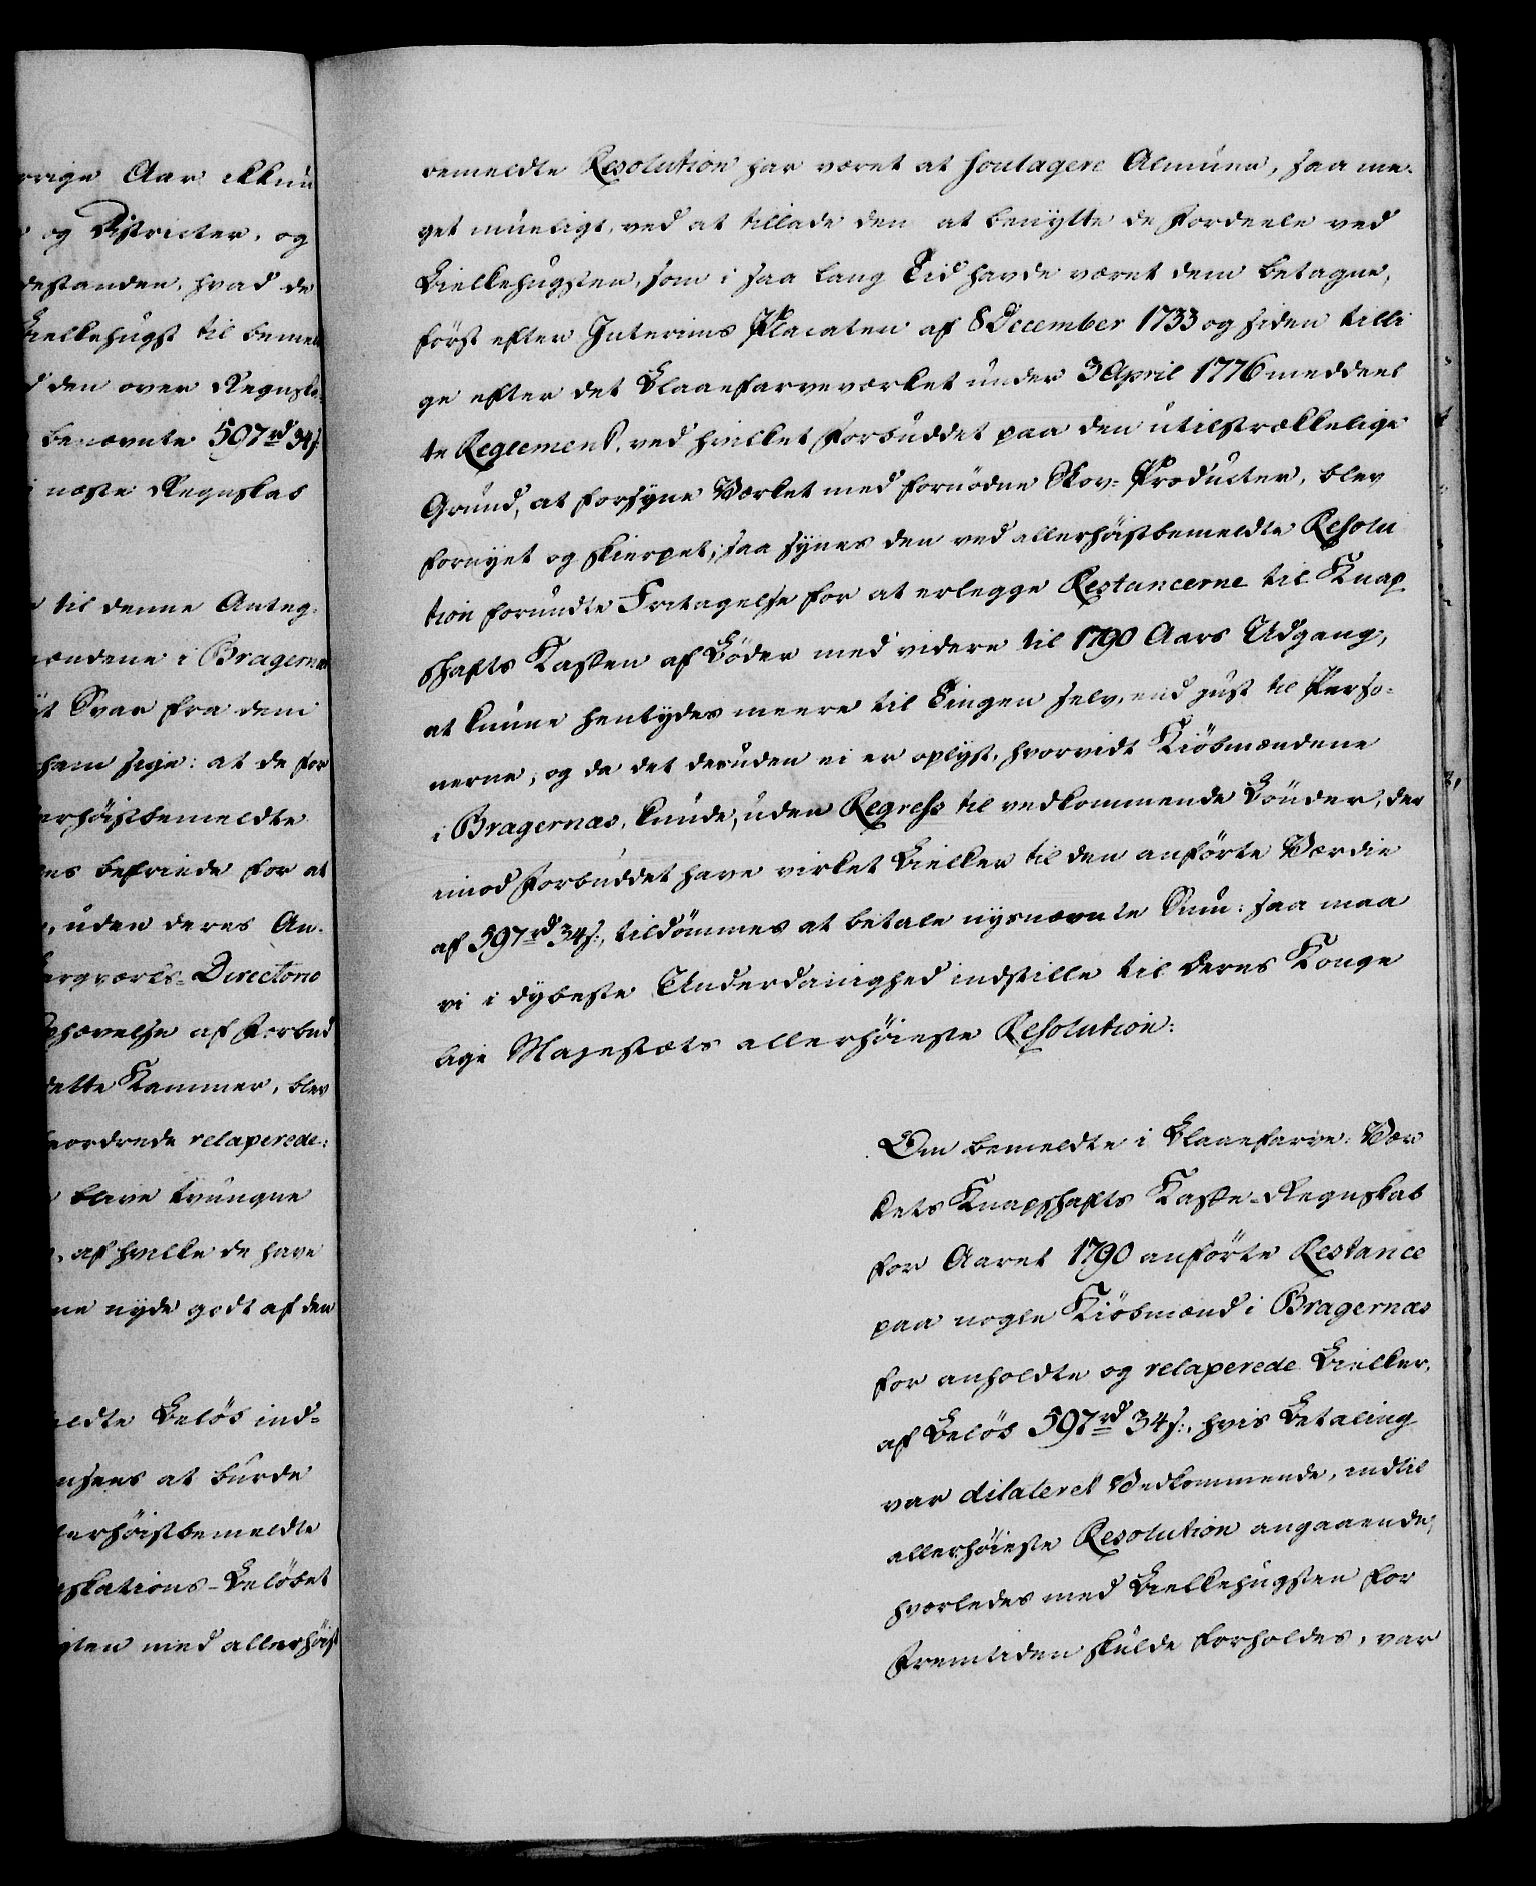 rrige Aar ikkun
og Districter, og
destanden, hvad de
Bielkehugst til bemel
d den over Regnska
benævnte 597rd 34s
næste Regnskab
til denne Anteg-
mændene i Bragernæs
it Svar fra dem
ham sige: at de for
erhöistbemeldte
es befriede for at
, uden deres An-
ergværks-Directorio
Ophævelse af Forbud
dette Kammer, blev
eordrede relaxerede:
blive tvungne
, af hvilke de have
ne nyde godt af den
eldte Belöb ind-
nsees at burde
lerhöistbemeldte
iskations-Belöbet
gten med allerhöist
bemeldte Resolution har været at soulagere Almuen, saa me-
get mueligt, ved at tillade den at benytte de Fordeele ved
Bielkehugsten, som i saa lang Tid havde været dem betagne,
först efter Interims Placaten af 8 December 1733 og siden tilli
ge efter det Blaaefarveværket under 3 April 1776 meddeel
te Reglement, ved hvilket Forbuddet paa den utilstrækkelige
Grund, at forsyne Værket med fornödne Skov-Producter, blev
fornyet og skierpet; saa synes den ved allerhöistbemeldte Resolu
tion forundte Fritagelse for at erlegge Restancerne til Knap
shafts Kassen af Böder med videre til 1790 Aars Udgang,
at kunne hentydes meere til Tingen selv, end just til Perso-
nerne, og da det desuden ei er oplyst, hvorvidt Kiöbmændene
i Bragernæs, kunde, uden Regress til vedkommende Bönder, der
imod Forbuddet have virket Bielker til den anförte Værdie
af 597rd 34s:, tildömmes at betale nysnævnte Sum: saa maa
vi i dybeste Underdanighed indstille til Deres Konge
lige Majestæts allerhöieste Resolution:
Om bemeldte i Blaaefarve-Vær
kets Knapshafts Kasse-Regnskab
for Aaret 1790 anförte Restance
paa nogle Kiöbmænd i Bragernæs
for anholdte og relaxerede Bielker,
af Belöb 597rd 34s:, hvis Betaling
var dilateret Vedkommende, indtil
allerhöieste Resolution angaaende,
hvorledes med Bielkehugsten for
Fremtiden skulde forholdes, var